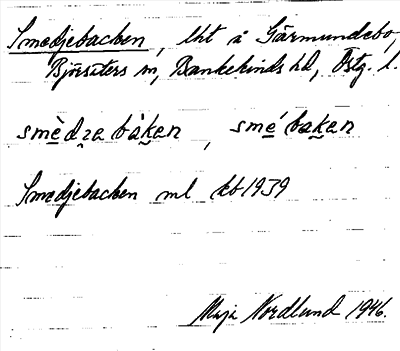 Smedjebacken, lht å Gärmundebo,
Björsäters sn, Bankekinds hd, Östg. l.
smèdza bàkan, smé bakan
Smedjebacken ml kb 1939
Maja Nordlund 1946.